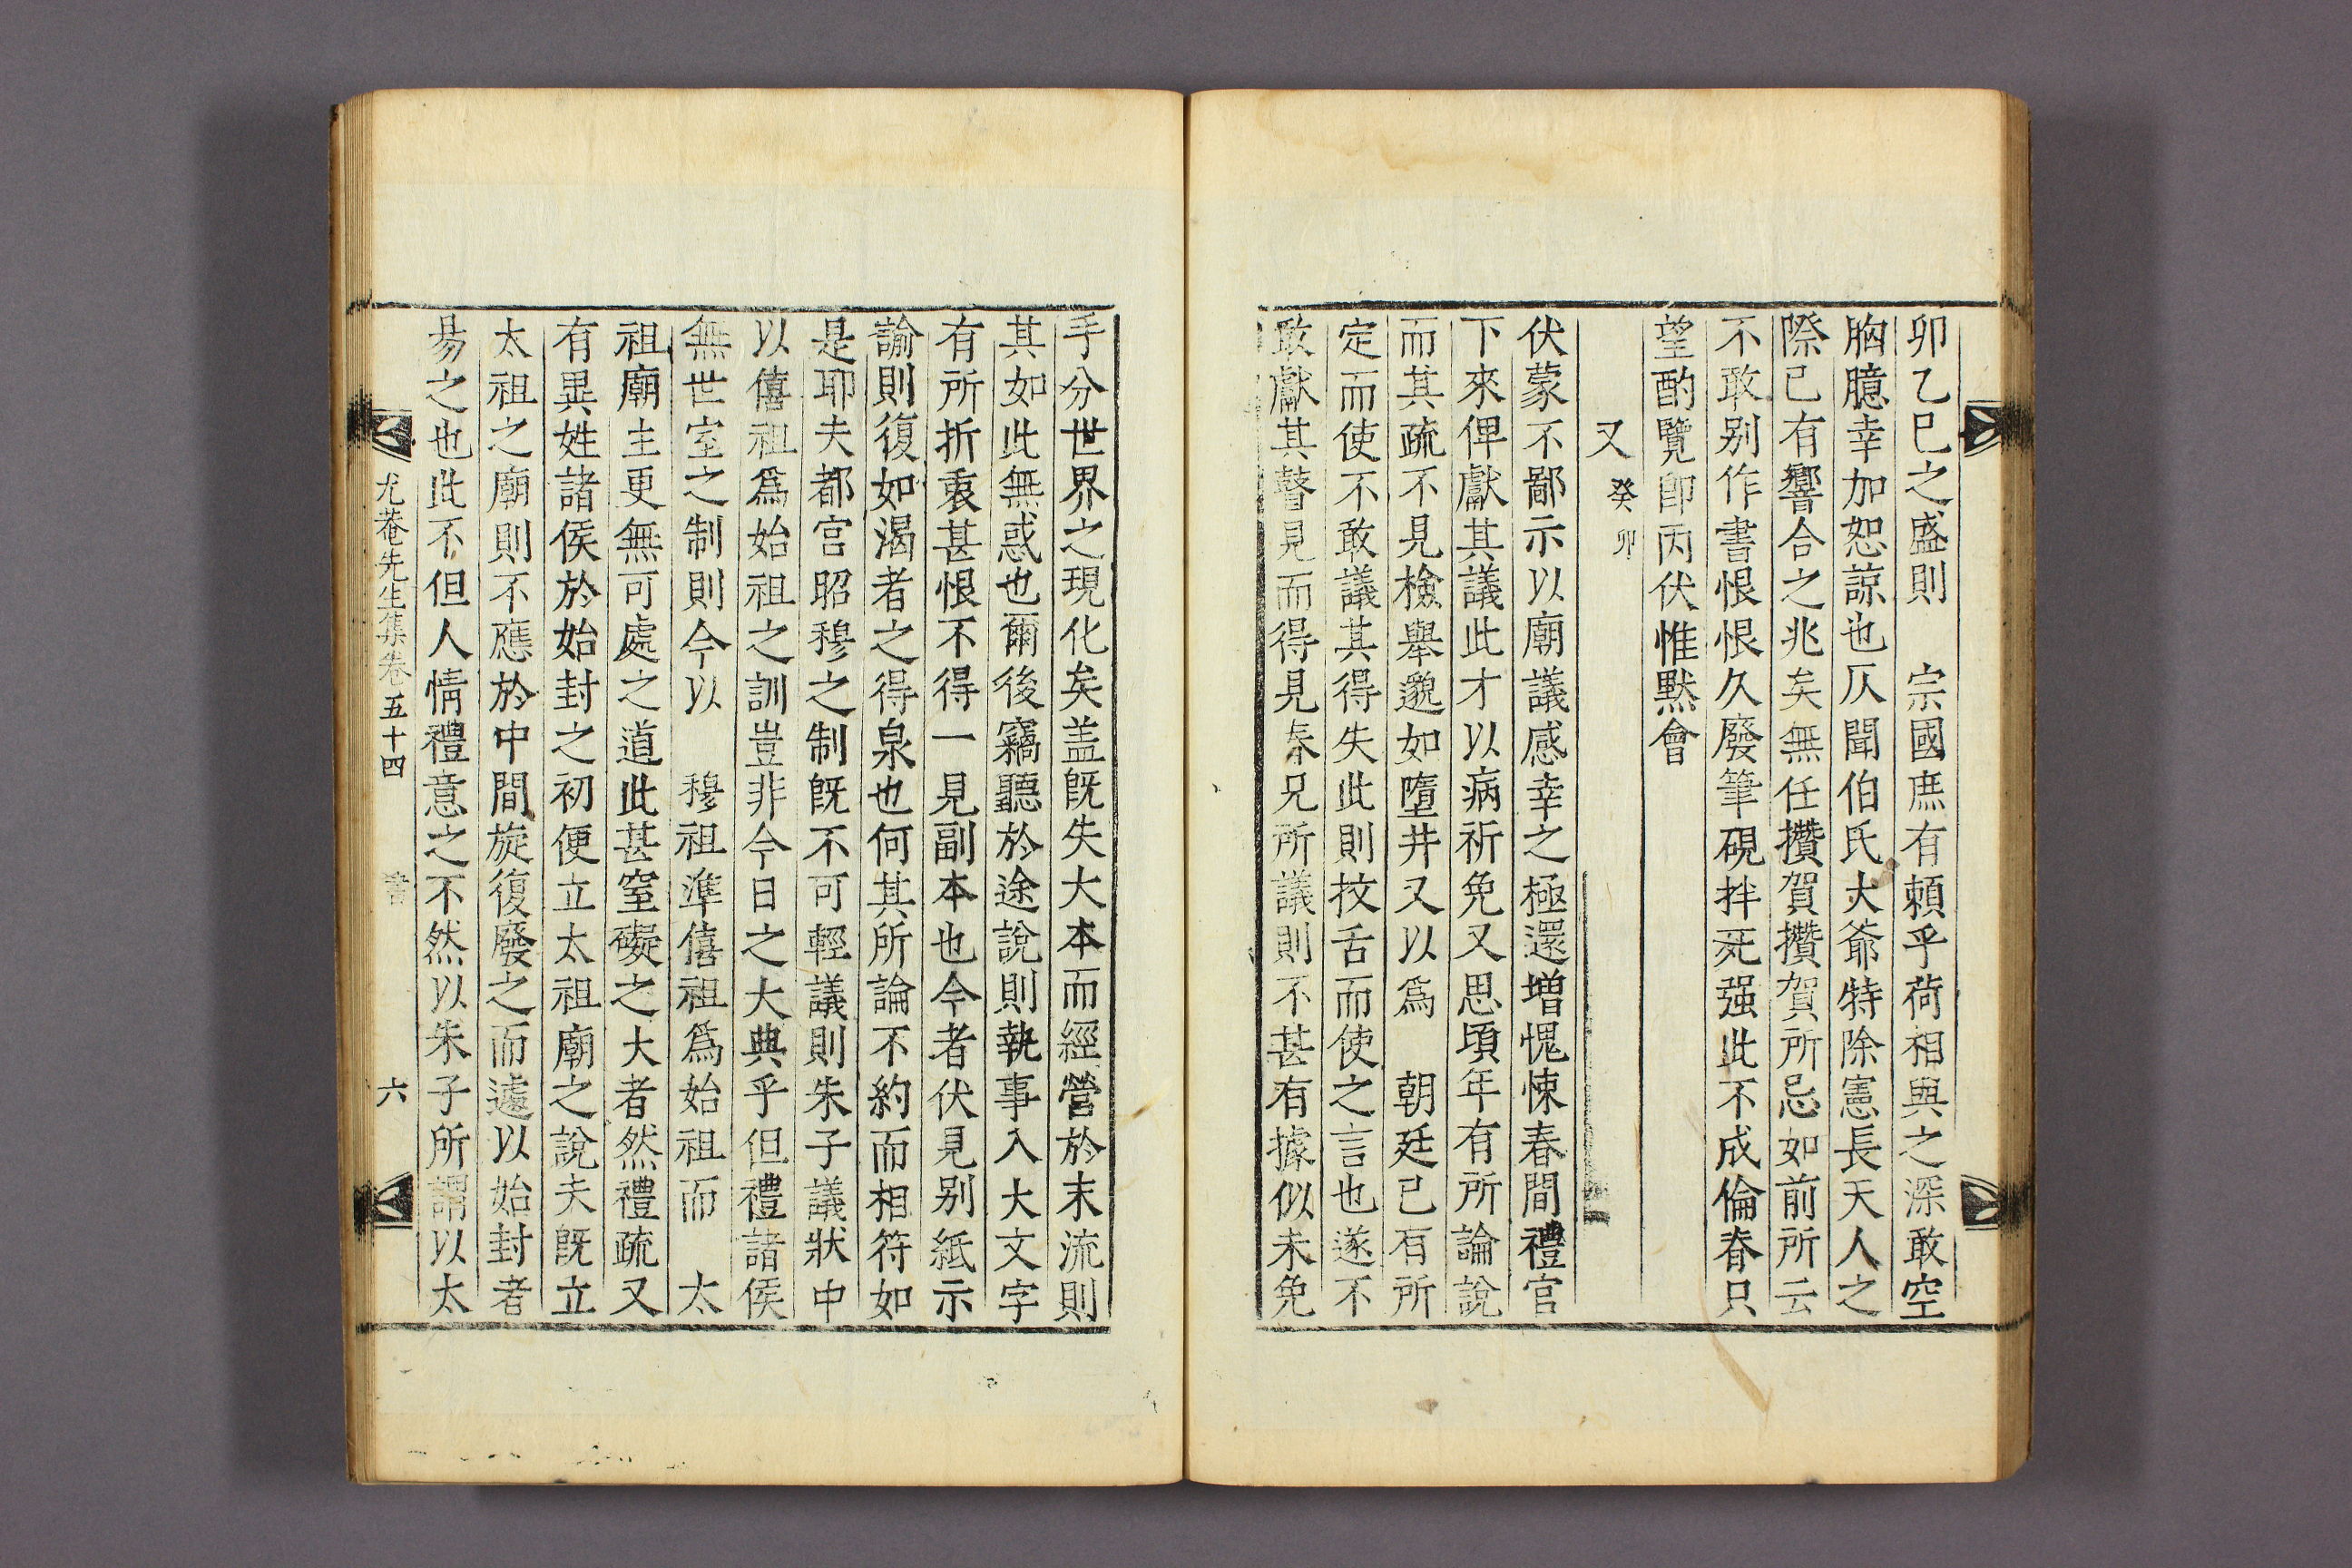 卯乙巳之盛則　宗國庶有頼乎荷相與之深敢空
胸臆幸加恕諒也仄聞伯氏大爺特除憲長天人之
際已有響合之兆矣無任攢賀攢賀所忌如前所云
不敢別作書恨恨久廢筆硯拌死强此不成倫脊只
望酌覽卽丙伏惟默會
又 癸卯
伏蒙不鄙示以廟議感幸之極還增愧悚春間禮官
下來俾獻其議此才以病祈免又思頃年有所論說
而其疏不見檢舉邈如墮井又以爲　朝廷已有所
定而使不敢議其得失此則抆舌而使之言也遂不
敢獻其瞽見而得見泰兄所議則不甚有據似未免
手分世界之現化矣盖旣失大本而經營於末流則
其如此無惑也爾後竊聽於途說則執事入大文字
有所折衷甚恨不得一見副本也今者伏見別紙示
諭則復如渴者之得泉也何其所論不約而相符如
是耶夫都宮昭穆之制旣不可輕議則朱子議狀中
以僖祖爲始祖之訓豈非今日之大典乎但禮諸侯
無世室之制則今以　穆祖準僖祖爲始祖而　太
祖廟主更無可處之道此甚窒礙之大者然禮疏又
有異姓諸侯於始封之初便立太祖廟之說夫旣立
太祖之廟則不應於中間旋復廢之而遽以始封者
易之也此不但人情禮意之不然以朱子所謂以太
尤菴先生集卷五十四　書　六